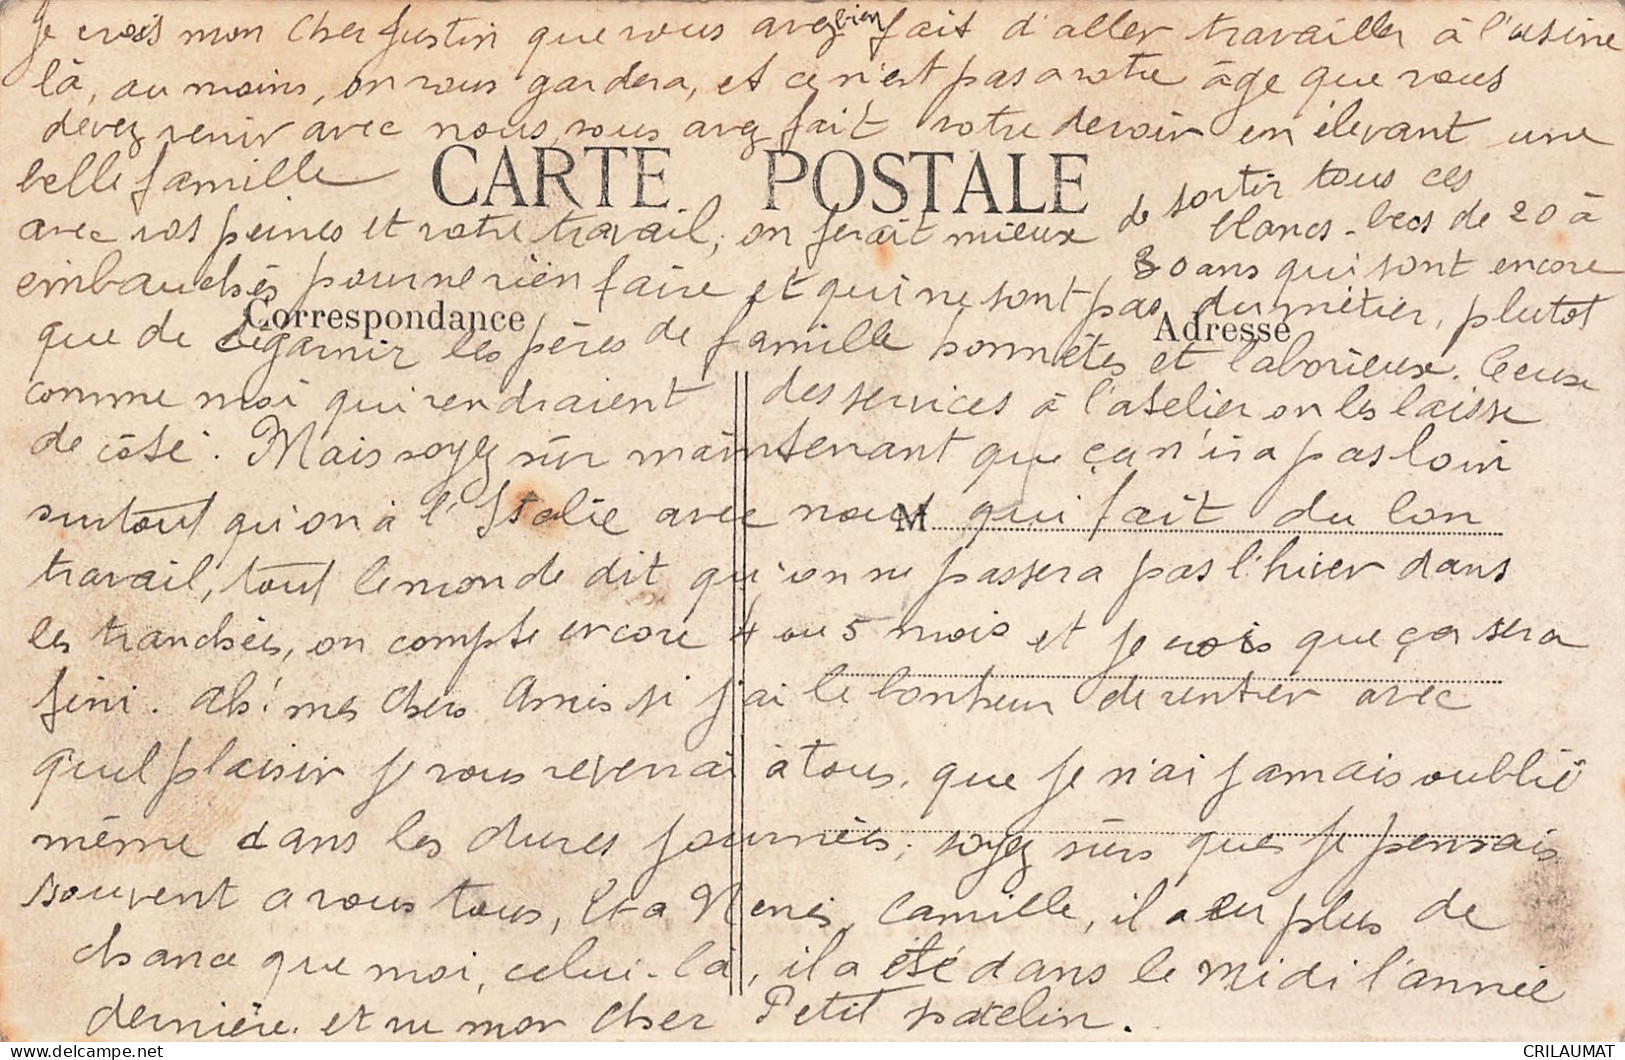 Je crois mon Cher Justin que vous avez bien fait d'aller travailler à l'usine
là, au moins, on vous gardera, et ce n'est pas a votre âge que vous
devez venir avec nous, vous avez fait votre devoir en élevant une
belle famille
CARTE POSTALE
avec vos peines et votre travail, on ferait mieux de sortir tous ces
blancs-becs de 20 à
embauchés pour ne rien faire et qui ne sont pas du métier, plutot
30 ans qui sont encore
Correspondance
Adresse
que de dégarnir les pères de famille honnêtes et laborieux. Ceux
comme moi qui rendraient des services à l'atelier on les laisse
de côté. Mais soyez sûr maintenant que ça n'ira pas loin
surtout qu'on à l'Italie avec nous qui fait du bon
M
travail, tout le monde dit qu'on ne passera pas l'hiver dans
les tranchées, on compte encore 4 ou 5 mois et je crois que ça sera
fini. Ah! mes chers Amis si j'ai le bonheur de rentrer avec
quel plaisir je vous reverrai à tous, que je n'ai jamais oublié
même dans les dures journées, soyez sûrs que je pensais
souvent a vous tous, Camille, il a eu plus de
chance que moi, celui-là, il a été dans le midi l'année
dernière et vu mon cher Petit patelin.
CRILAUMAT